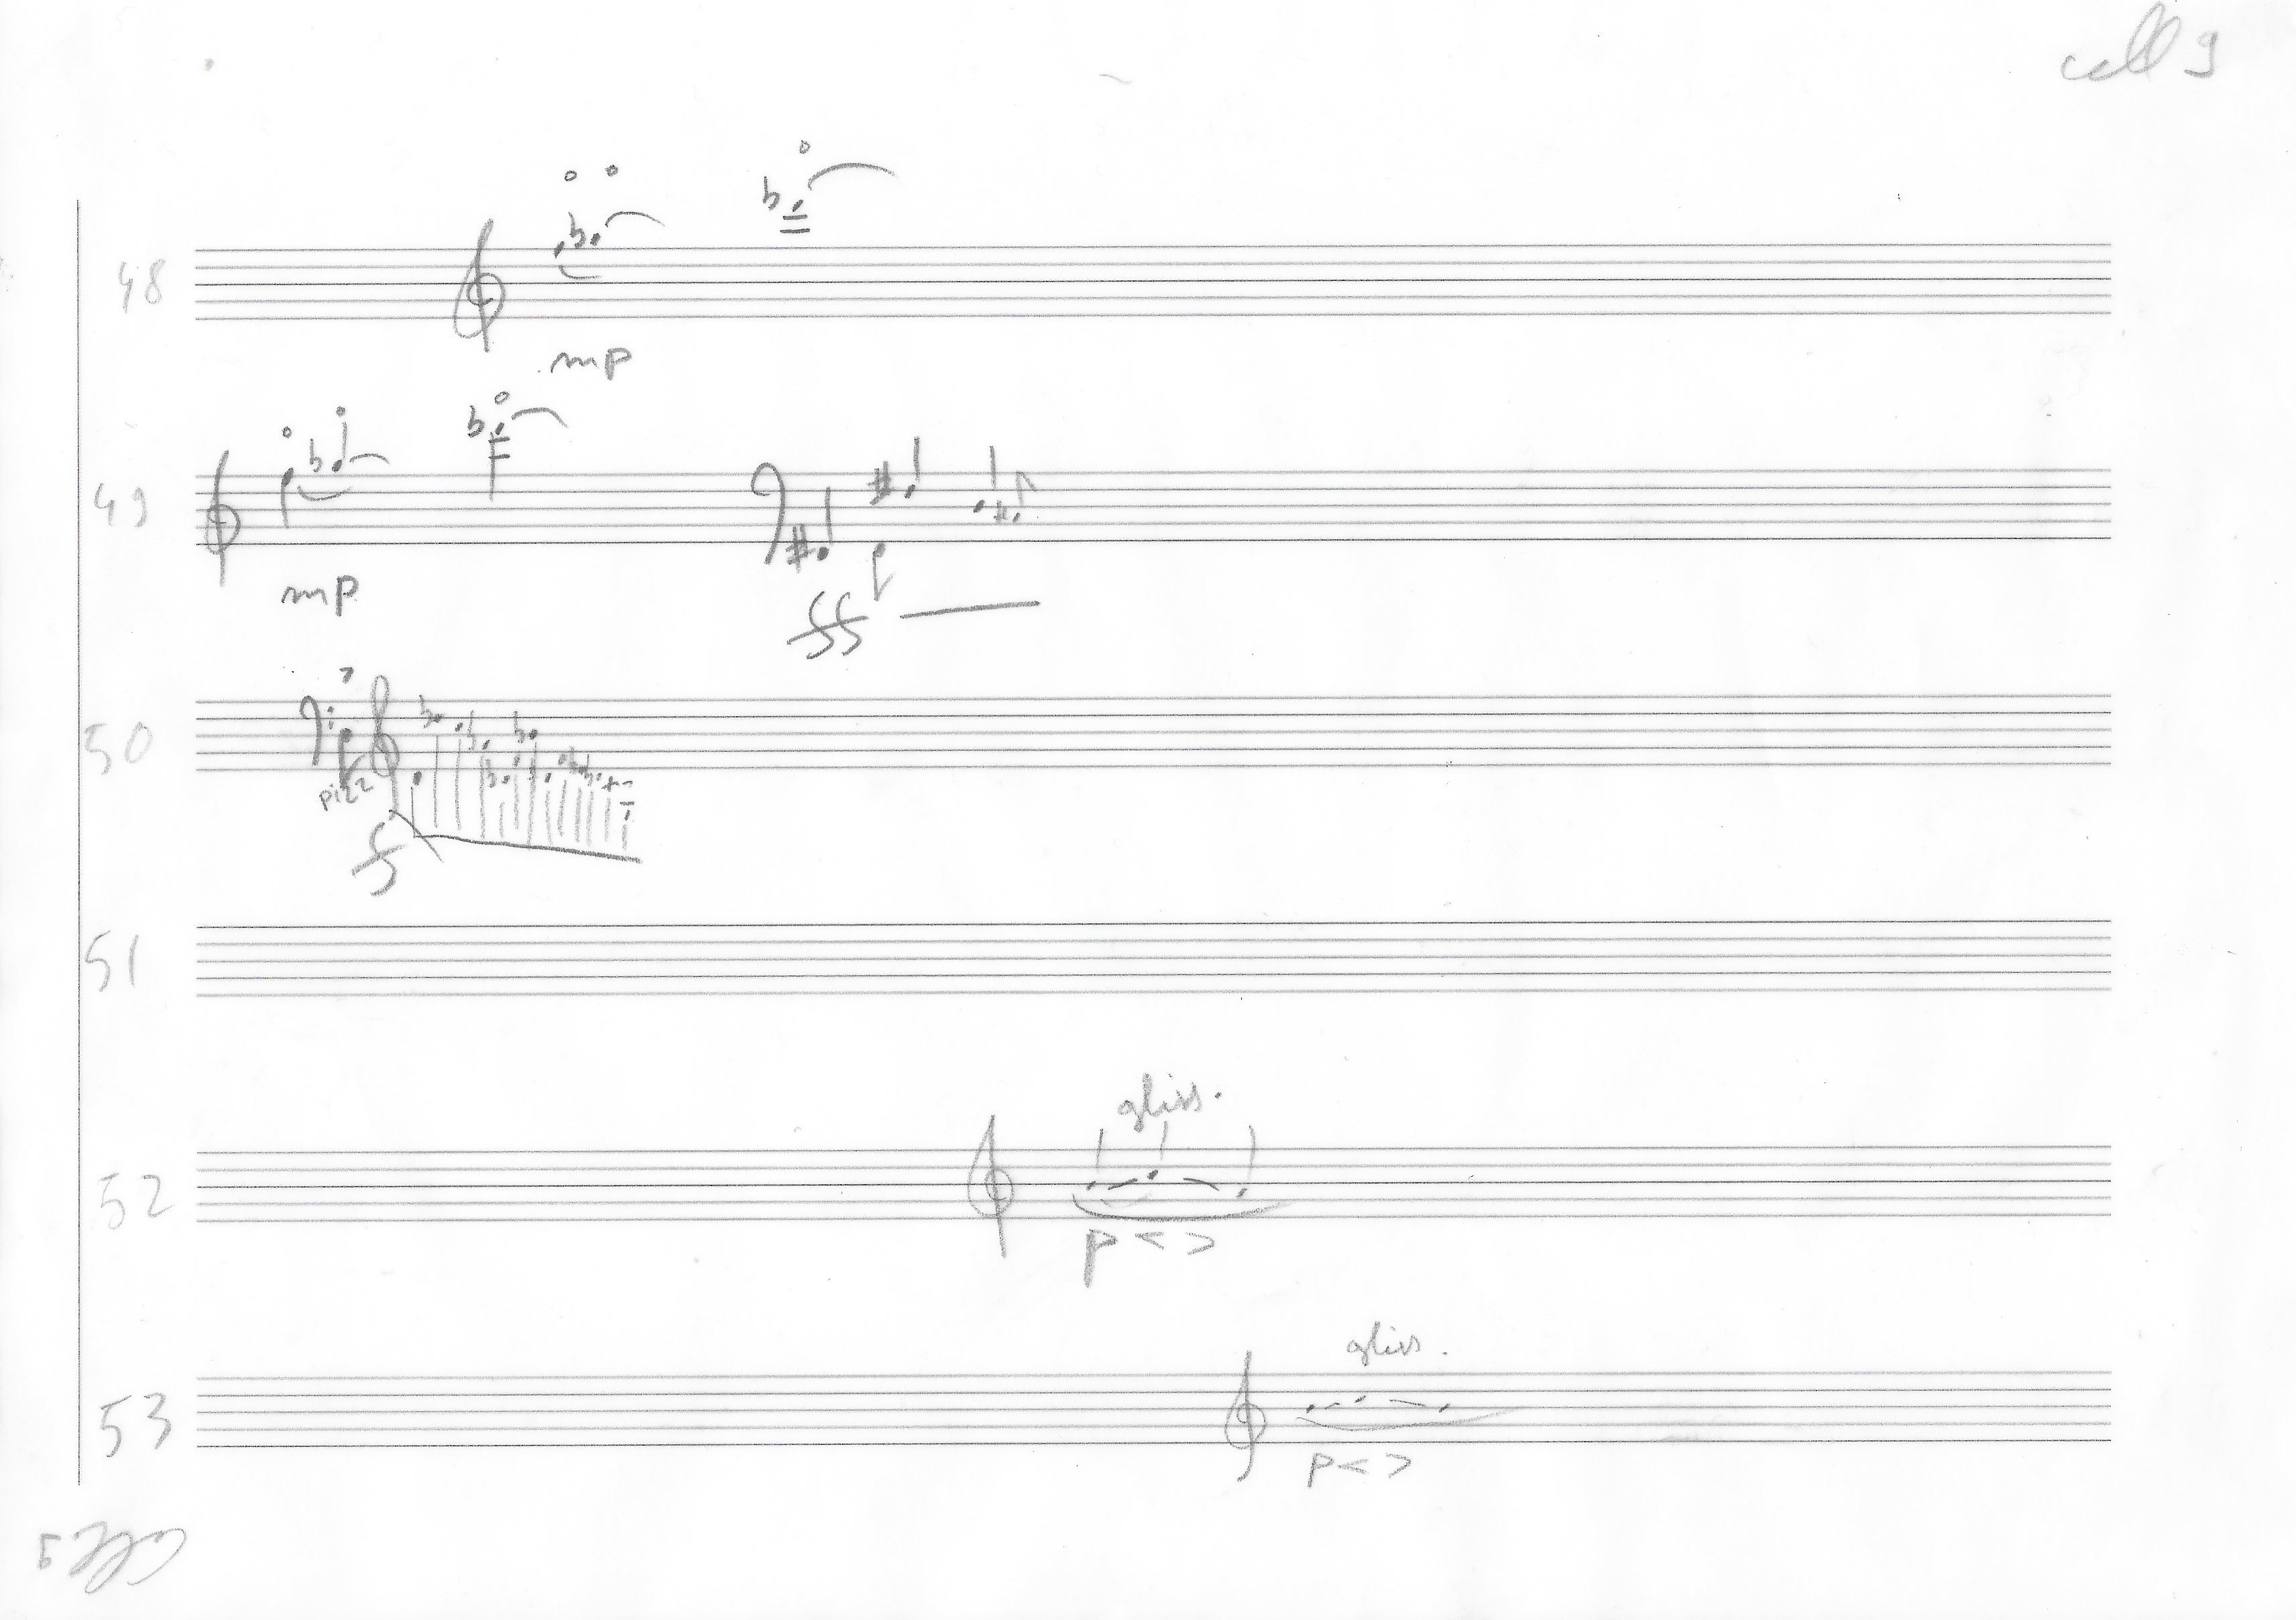 cell 9
48
mp
49
mp
ff
50
pizz
f
51
gliss.
52
p < >
gliss.
53
p < >